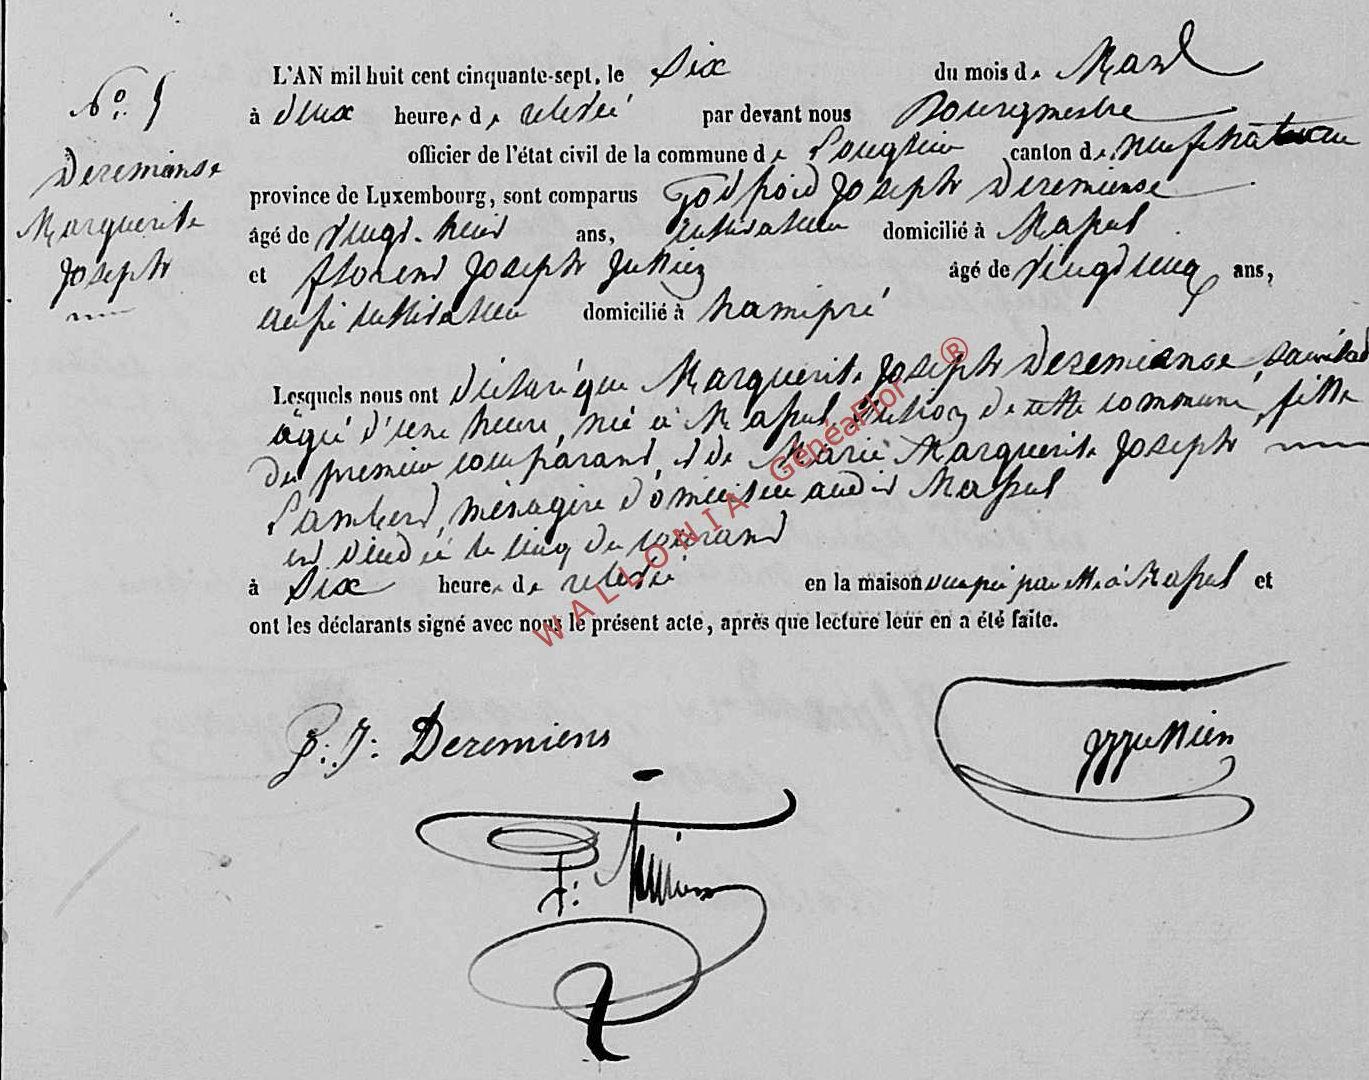 N.o 5
Deremiense
Marguerite
Joseph
L'AN mil huit cent cinquante-sept, le six du mois de Mars
à deux heures de relevée par devant nous Bourgmestre
officier de l'état civil de la commune de Longlier canton de neufchateau
province de Luxembourg, sont comparus Godfroid Joseph Deremiense
âgé de vingt-huit ans, cultivateur domicilié à Massul
et florent Joseph Jullien âgé de vingt cinq ans,
aussi cultivateur domicilié à hamipré
Lesquels nous ont déclaré que Marguerite Joseph Deremiense
âgée d'une heure, née à Massul, section de cette commune, fille
du premier comparant, et de Marie Marguerite Joseph
Lambert, ménagère domiciliée audit Massul
est décédée le cinq du courant
à six heures de relevée en la maison occupée par elle à Massul et
ont les déclarants signé avec nous le présent acte, après que lecture leur en a été faite.
G: J: Deremiens
WALLONIA GeneaFlor ®